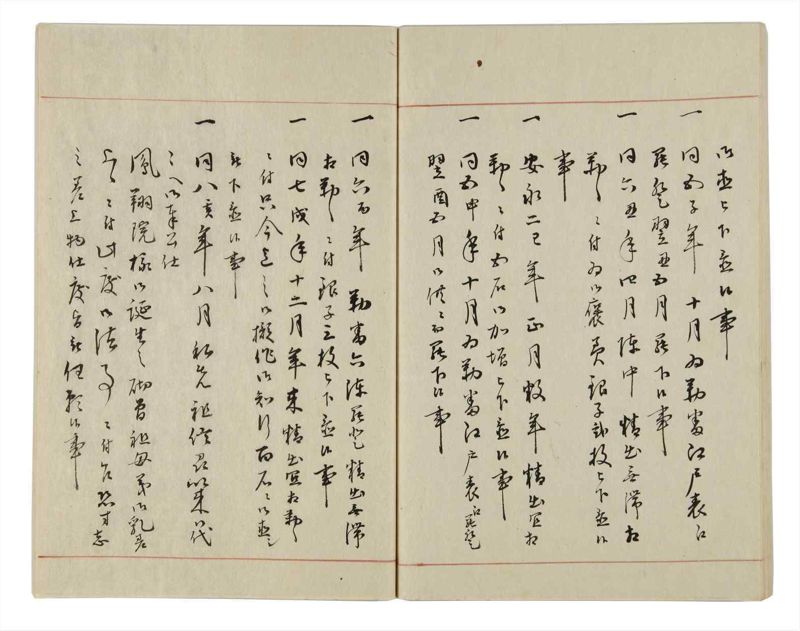 御直ニ被下置候事
一 同五子年 十月為勤番江戸表江
罷登翌丑五月罷下候事
一 同六丑年 四月 詰中 精出無滞相
勤候ニ付為御褒美銀子弐枚被下置候
事
一 安永二巳年 正月 数年精出宜相
勤候ニ付五石御加増被下置候事
一 同五申年十月為勤番江戸表江罷登
翌酉五月御供ニ而罷下候事
一 同六酉年 勤番六詰罷登精出無滞
相勤候ニ付銀子三枚被下置候事
一 同七戌年十二月年来精出宜相勤候
ニ付只今迄之御擬作御知行百石ニ御直シ
被下置候事
一 同八亥年八月 私先祖 以来代
之御奉公仕
鳳翔院様御誕生之砌曽祖母弟御乳
ニ付此度御法事ニ付
之差上物仕度旨被任願候事